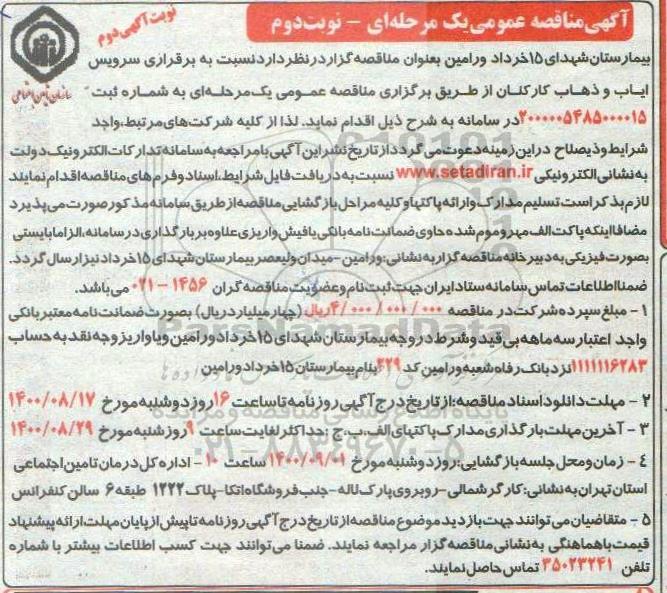 آگهی مناقصه عمومی یک مرحله‌ای - نوبت دوم
نوبت آگهی دوم
سازمان تأمین اجتماعی
بیمارستان شهدای ۱۵خرداد ورامین بعنوان مناقصه گزار در نظر دارد نسبت به برقراری سرویس
ایاب و ذهاب کارکنان از طریق برگزاری مناقصه عمومی یک مرحله‌ای به شماره ثبت
۲۰۰۰۰۰۵۴۸۵۰۰۰۰۱۵ در سامانه به شرح ذیل اقدام نماید. لذا از کلیه شرکت‌های مرتبط، واجد
شرایط و ذیصلاح در این زمینه دعوت می گردد از تاریخ نشر این آگهی با مراجعه به سامانه تدارکات الکترونیک دولت
به نشانی الکترونیکی www.setadiran.ir نسبت به دریافت فایل شرایط، اسناد و فرم های مناقصه اقدام نمایند
لازم بذکر است تسلیم مدارک و ارائه پاکتها و کلیه مراحل بازگشایی مناقصه از طریق سامانه مذکور صورت می پذیرد
مضافا اینکه پاکت الف مهر و موم شده حاوی ضمانت نامه بانکی یا فیش واریزی علاوه بر بارگذاری در سامانه، الزاما بایستی
بصورت فیزیکی به دبیرخانه مناقصه گزار به نشانی: ورامین - میدان ولیعصر بیمارستان شهدای ۱۵خرداد نیز ارسال گردد.
ضمنا اطلاعات تماس سامانه ستاد ایران جهت ثبت نام و عضویت مناقصه گران ۱۴۵۶ - ۰۲۱ می باشد.
۱ - مبلغ سپرده شرکت در مناقصه ۴/۰۰۰/۰۰۰/۰۰۰ریال (چهار میلیارد ریال) بصورت ضمانت نامه معتبر بانکی
واجد اعتبار سه ماهه بی قید و شرط در وجه بیمارستان شهدای ۱۵خرداد ورامین و یا واریز وجه نقد به حساب
۱۱۱۱۱۱۶۲۸۳ نزد بانک رفاه شعبه ورامین کد ۲۲۹ بنام بیمارستان ۱۵خرداد ورامین
۲ - مهلت دانلود اسناد مناقصه: از تاریخ درج آگهی روزنامه تا ساعت ۱۶ روز دوشنبه مورخ ۱۴۰۰/۰۸/۱۷
۳ - آخرین مهلت بارگذاری مدارک پاکتهای الف، ب، ج : حداکثر لغایت ساعت ۹ روز شنبه مورخ ۱۴۰۰/۰۸/۲۹
۴ - زمان و محل جلسه بازگشایی: روز دوشنبه مورخ ۱۴۰۰/۰۹/۰۱ ساعت ۱۰ - اداره کل درمان تامین اجتماعی
استان تهران به نشانی: کارگر شمالی - روبروی پارک لاله - جنب فروشگاه اتکا - پلاک ۱۲۲۲ طبقه ۶ سالن کنفرانس
۵ - متقاضیان می توانند جهت بازدید موضوع مناقصه از تاریخ درج آگهی روزنامه تا پیش از پایان مهلت ارائه پیشنهاد
قیمت با هماهنگی به نشانی مناقصه گزار مراجعه نمایند. ضمنا می توانند جهت کسب اطلاعات بیشتر با شماره
تلفن ۳۵۰۲۳۲۴۱ تماس حاصل نمایند.
ParsNamadData
پایگاه اطلاع رسانی مناقصه و مزایده
۰۲۱-۸۸۳۴۹۶۷۰-۵